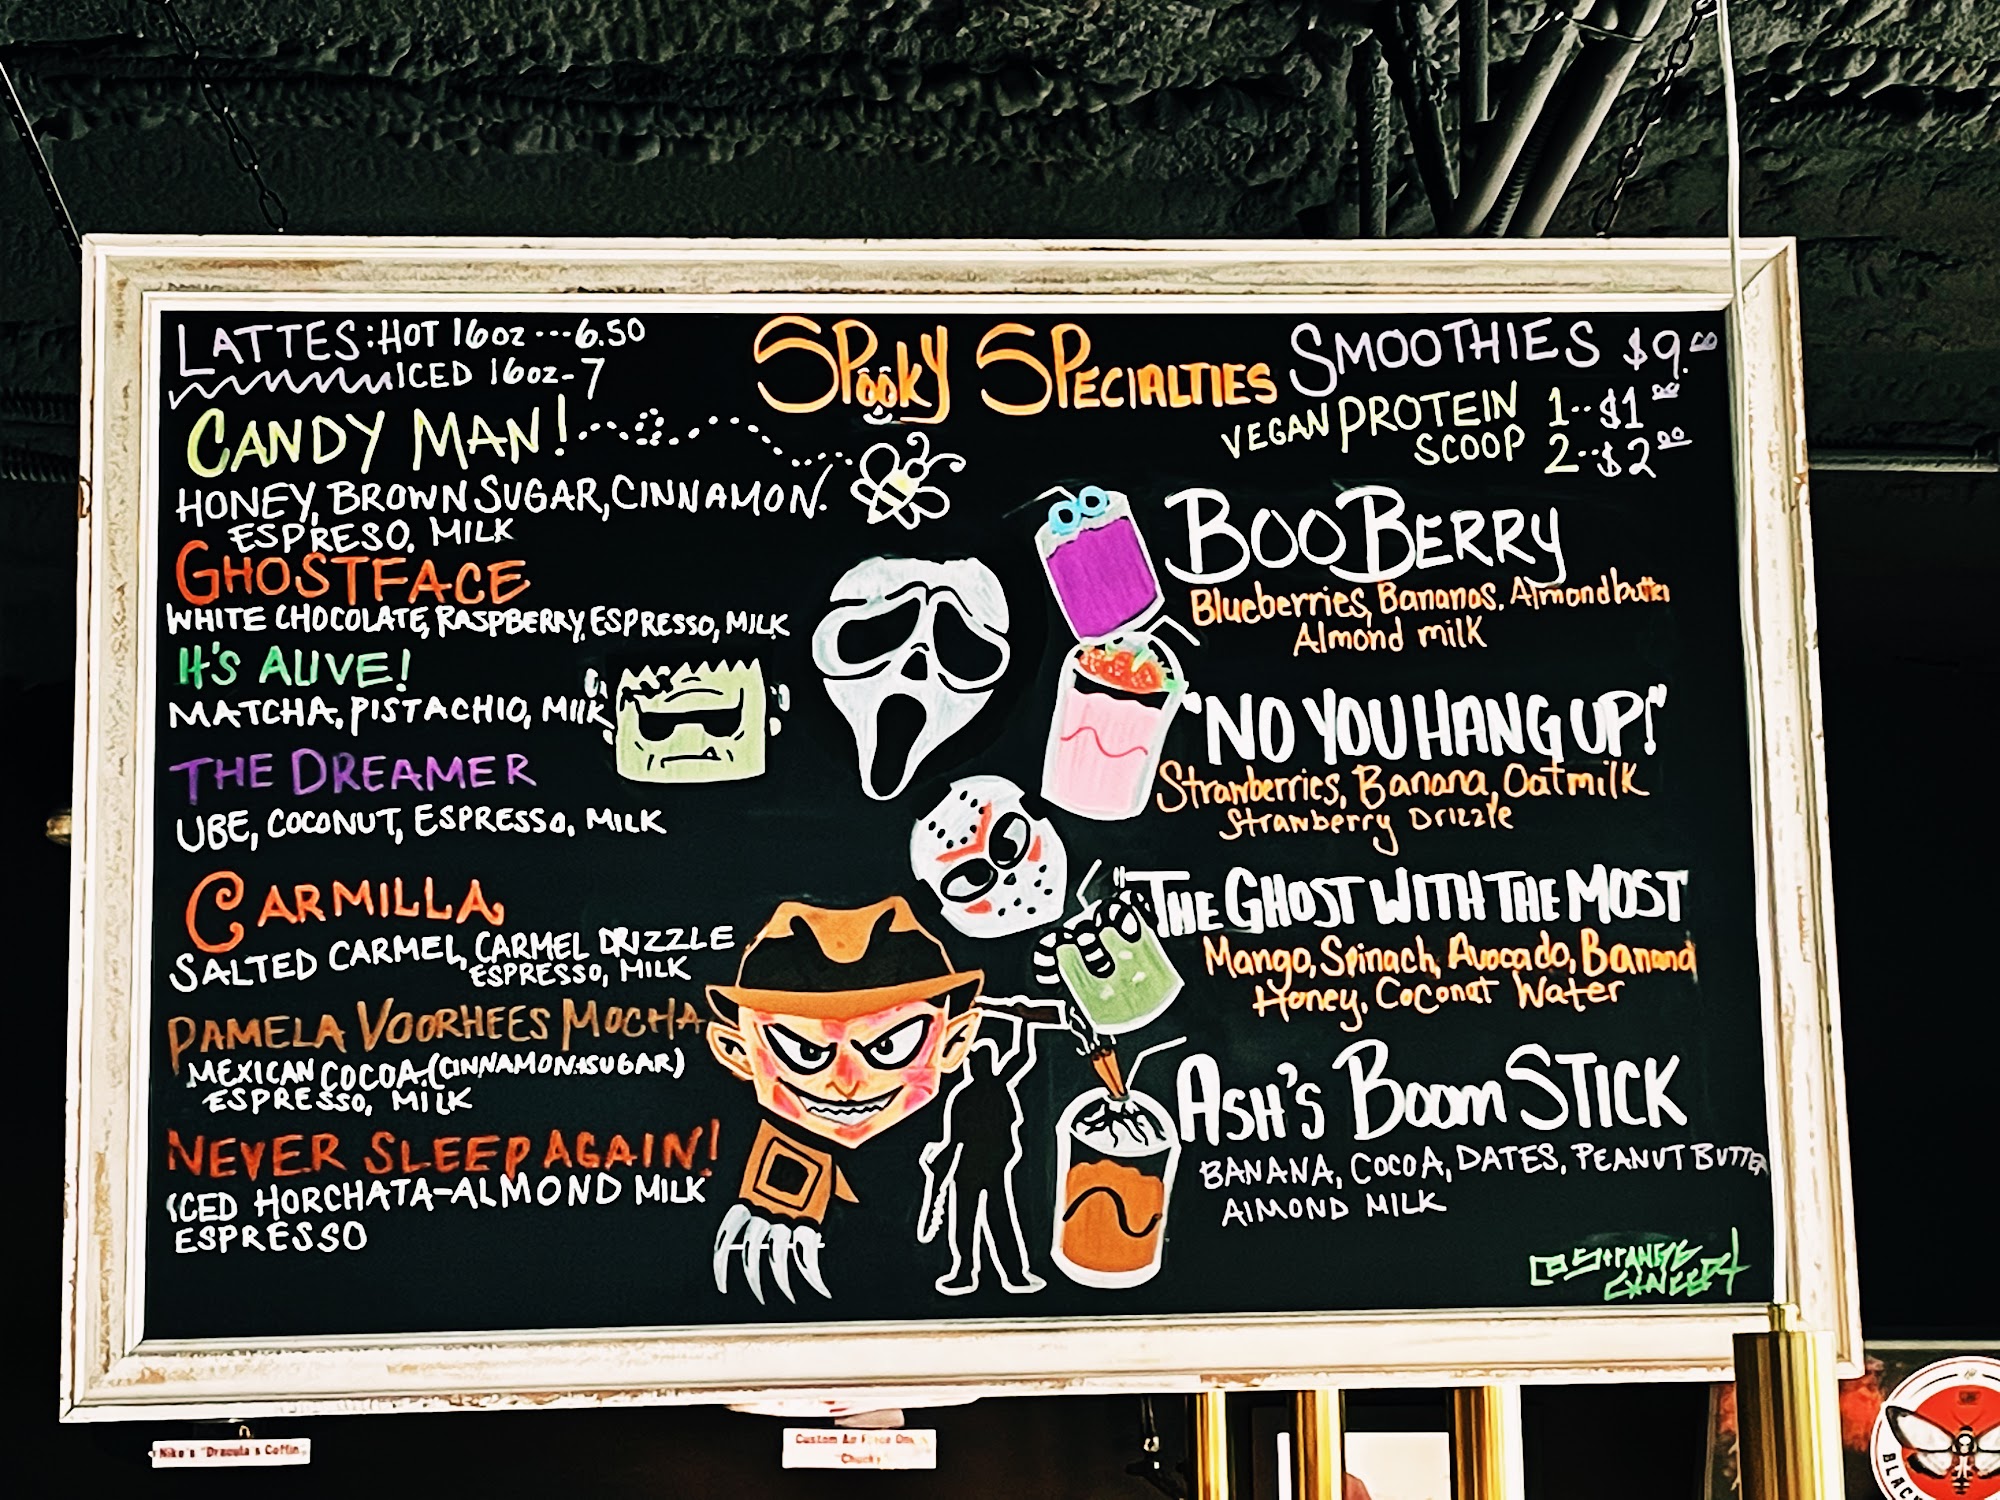 LATTES: HOT 16oz ---6.50
ICED 16oz-7
SPOOKY SPECIALTIES
CANDY MAN!
HONEY, BROWN SUGAR, CINNAMON.
ESPRESO, MILK
GHOSTFACE
WHITE CHOCOLATE, RASPBERRY, ESPRESSO, MILK
IT'S ALIVE!
MATCHA, PISTACHIO, MILK
THE DREAMER
UBE, COCONUT, ESPRESSO, MILK
CARMILLA
SALTED CARMEL, CARMEL DRIZZLE
ESPRESSO, MILK
PAMELA VOORHEES MOCHA
MEXICAN COCOA (CINNAMON+SUGAR)
ESPRESSO, MILK
NEVER SLEEP AGAIN!
ICED HORCHATA-ALMOND MILK
ESPRESSO
SMOOTHIES $9.00
VEGAN PROTEIN 1..$1.00
SCOOP 2..$2.00
BOO BERRY
Blueberries, Bananas, Almond butter
Almond milk
"NO YOU HANG UP!"
Strawberries, Banana, Oatmilk
Strawberry Drizzle
"THE GHOST WITH THE MOST
Mango, Spinach, Avocado, Banana
Honey, Coconut Water
ASH'S BOOM STICK
BANANA, COCOA, DATES, PEANUT BUTTER
ALMOND MILK
STRANGE
Nike's "Dracula's Coffin
Custom Air Force One
"Chucky"
BLAC